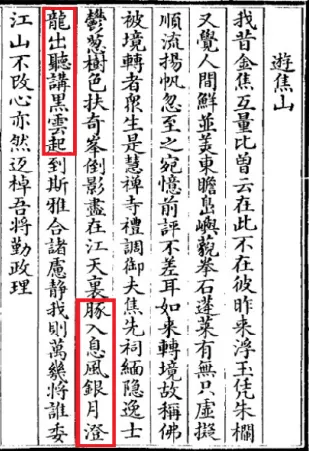 遊焦山
我昔金焦互量比曾云在此不在彼昨來浮玉凭朱欄
又覺人間鮮並美東瞻島嶼藐拳石蓬萊有無只虛擬
順流揚帆忽至之宛憶前評不差耳如來轉境故稱佛
被境轉者衆生是慧禪寺禮調御夫焦先祠緬隐逸士
鬱葱樹色扶奇峯倒影盡在江天裏豚入息風銀月澄
龍出聽講黒雲起到斯雅合諸慮静我則萬幾將誰委
江山不改心亦然迈棹吾將勤政理